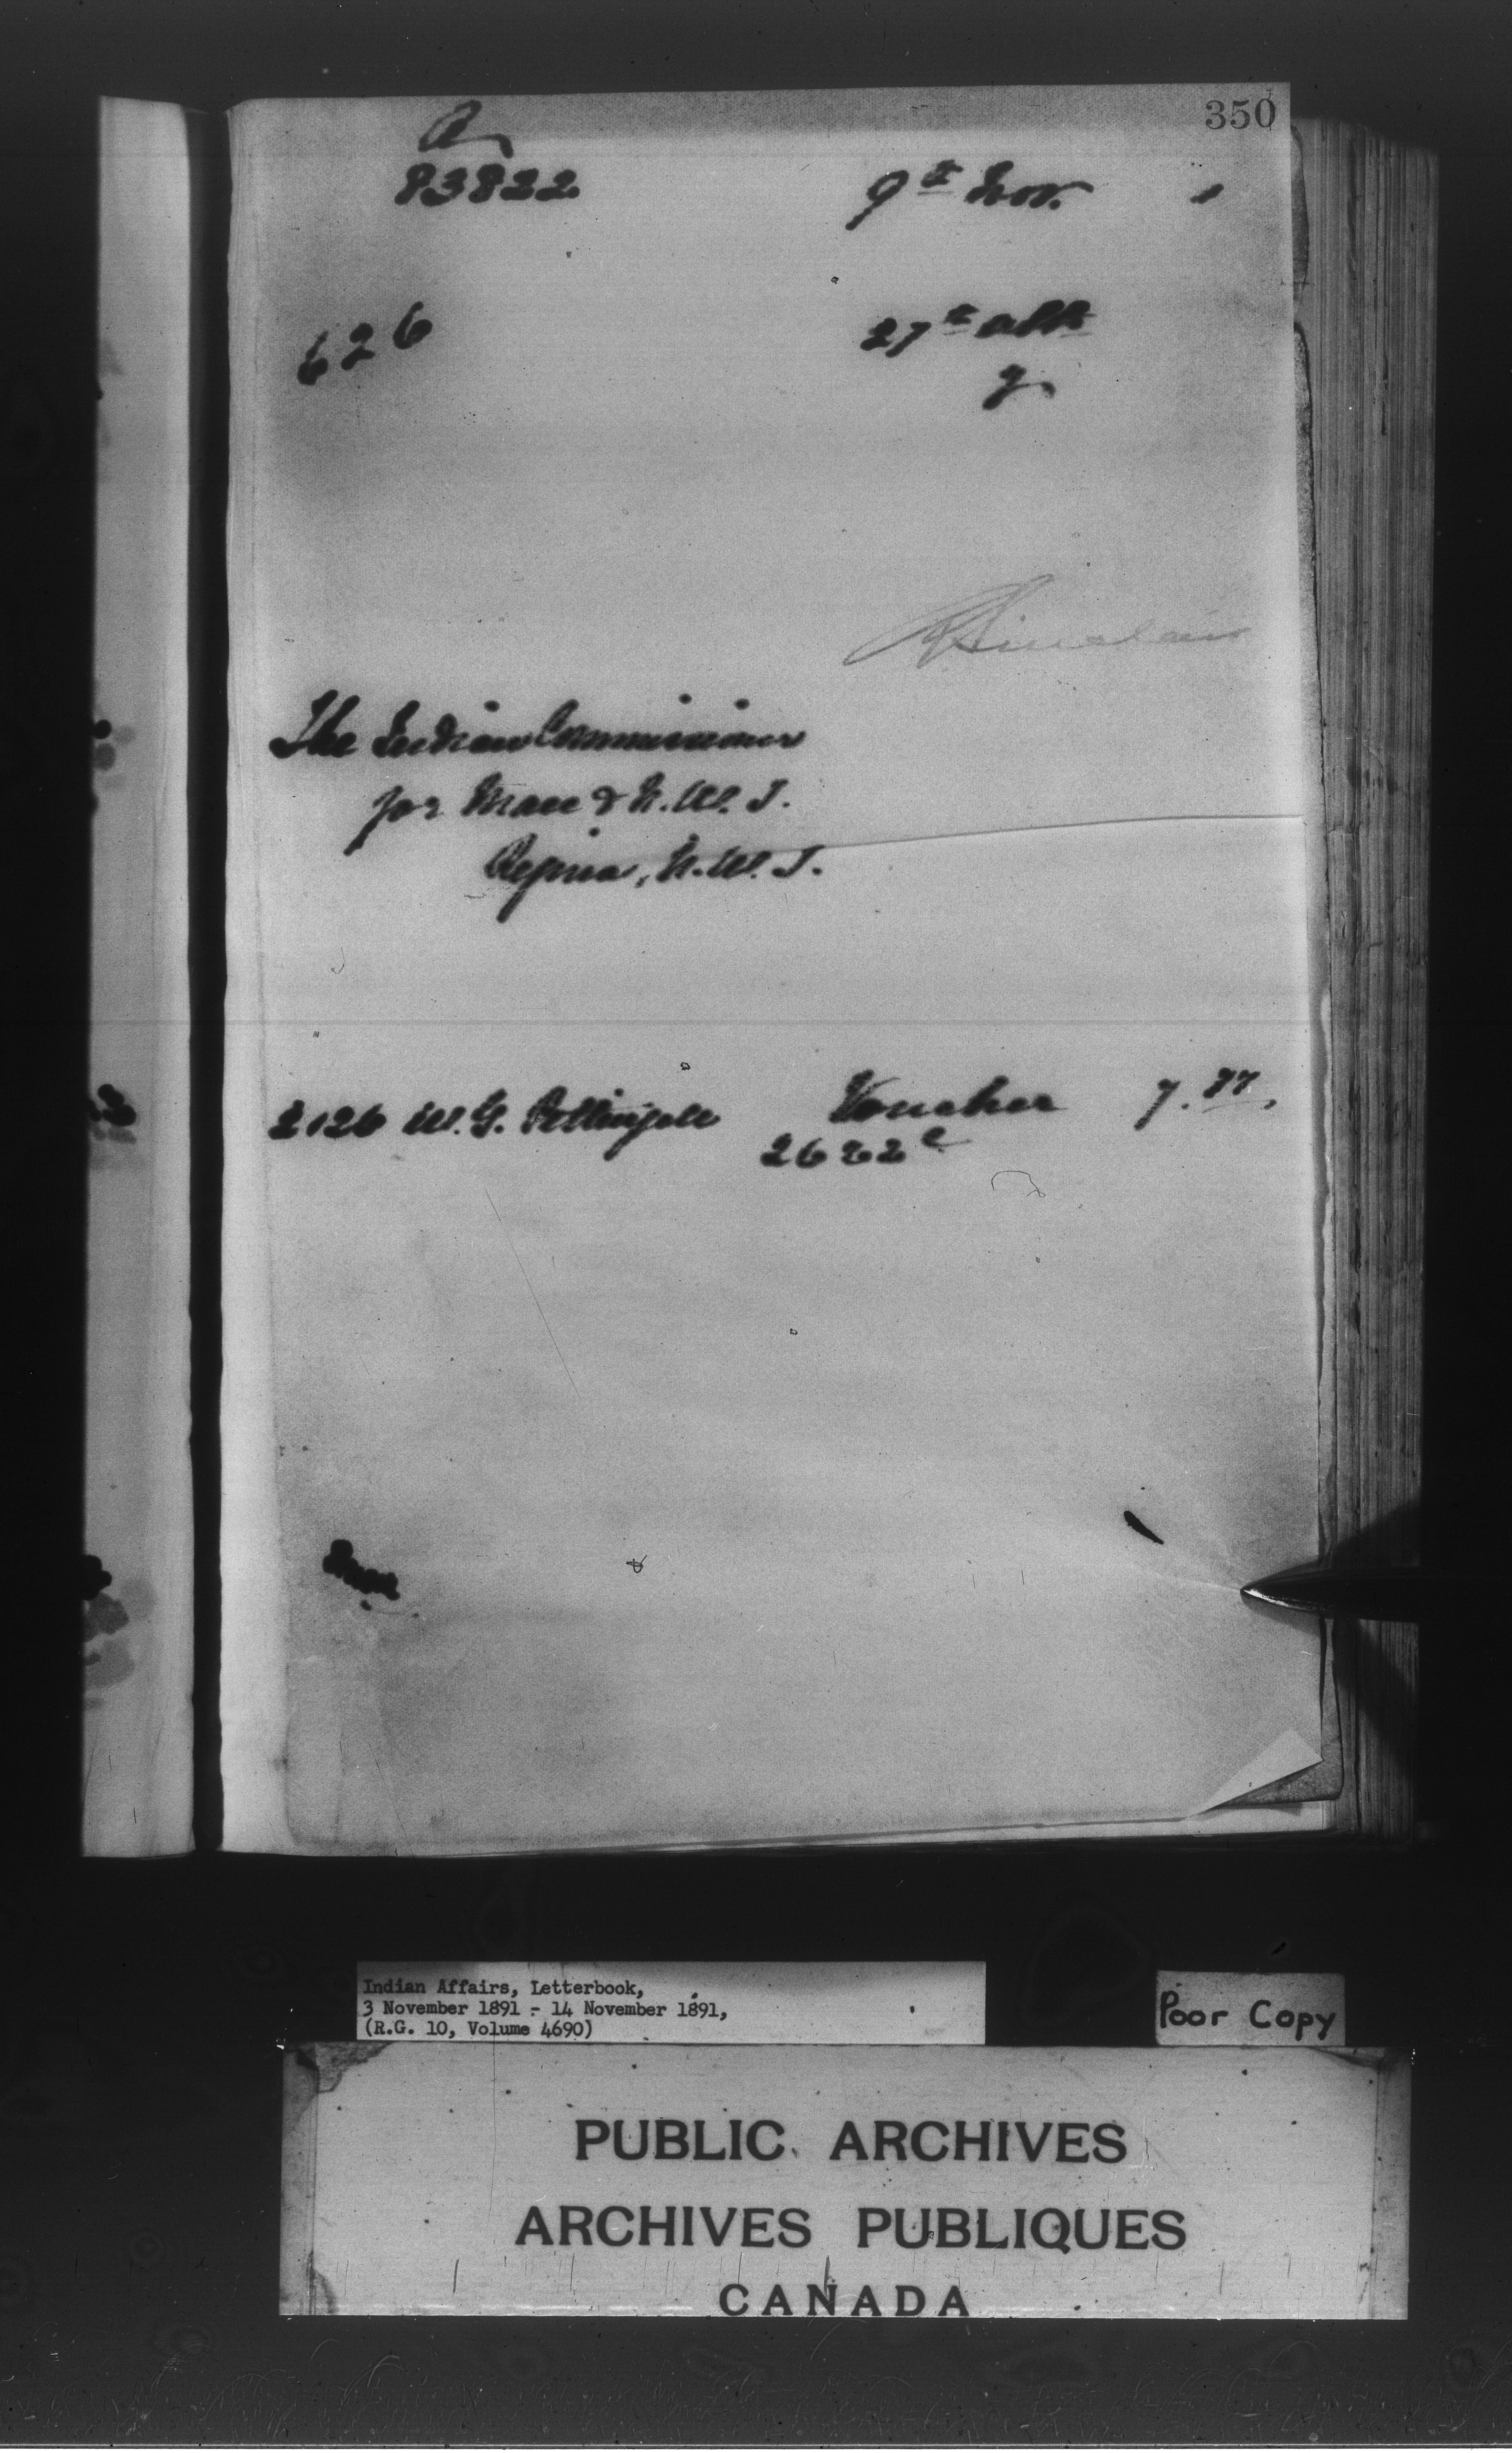 350
A
83822 9th Nov. 1
626 27th ulto
The Indian Commissioner
for Man & N.W.T.
Regina, N.W.T.
2126 W. G. Pettingell Voucher 7.77,
2622 c
Indian Affairs, Letterbook,
3 November 1891 - 14 November 1891,
(R.G. 10, Volume 4690)
Poor Copy
PUBLIC ARCHIVES
ARCHIVES PUBLIQUES
CANADA